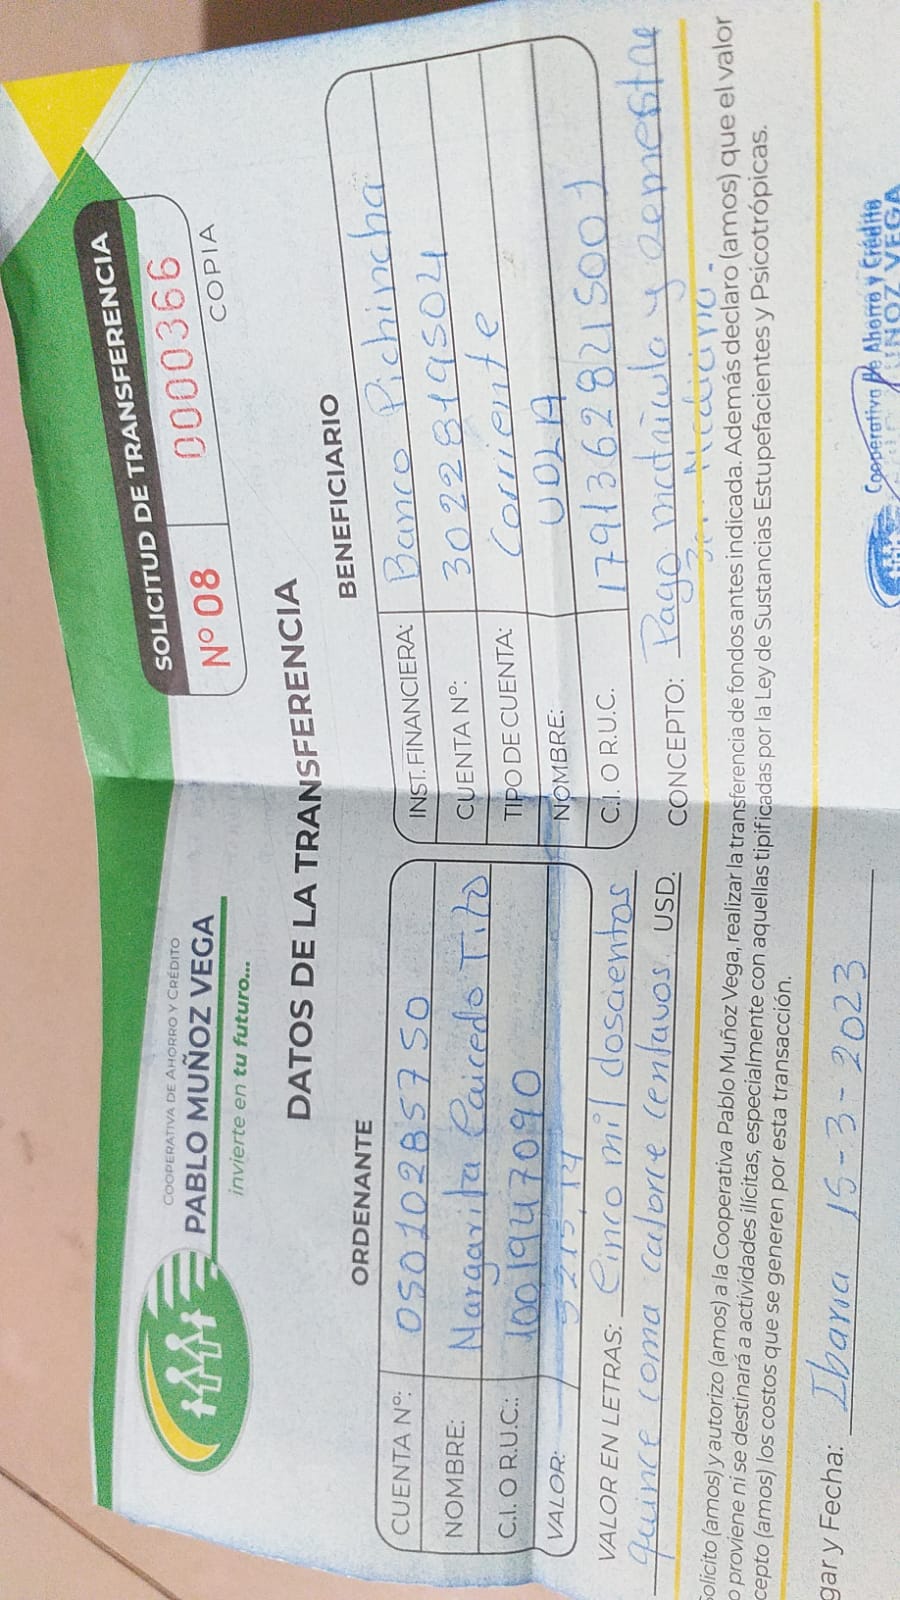 COOPERATIVA DE AHORRO Y CRÉDITO
PABLO MUÑOZ VEGA
invierte en tu futuro...
SOLICITUD DE TRANSFERENCIA
Nº 08 0000366
COPIA
DATOS DE LA TRANSFERENCIA
ORDENANTE
CUENTA Nº: 050102857 50
NOMBRE: Margarita Caicedo Tito
C.I. O R.U.C.: 1001947090
VALOR: 5215,14
VALOR EN LETRAS: Cinco mil doscientos
quince coma catorce centavos USD.
BENEFICIARIO
INST. FINANCIERA: Banco Pichincha
CUENTA Nº: 3022819504
TIPO DE CUENTA: Corriente
NOMBRE: UDLA
C.I. O R.U.C. 1791362821S001
CONCEPTO: Pago matricula y semestre
Medicina.
Solicito (amos) y autorizo (amos) a la Cooperativa Pablo Muñoz Vega, realizar la transferencia de fondos antes indicada. Además declaro (amos) que el valor
o proviene ni se destinará a actividades ilícitas, especialmente con aquellas tipificadas por la Ley de Sustancias Estupefacientes y Psicotrópicas.
cepto (amos) los costos que se generen por esta transacción.
gar y Fecha: Ibarra 15-3-2023
Cooperativa de Ahorro y Crédito
MUÑOZ VEGA